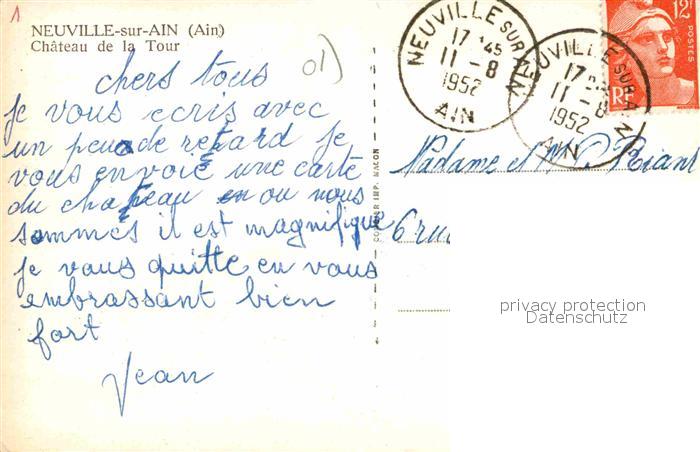 1
NEUVILLE-sur-AIN (Ain)
Château de la Tour
01)
chers tous
je vous ecris avec
un peu de retard je
vous envoie une carte
du chateau en ou nous
sommes il est magnifique
je vous quitte en vous
embrassant bien
fort
Jean
COMBIER IMP. MACON
NEUVILLE SUR AIN
17 45
11 - 8
1952
AIN
NEUVILLE SUR AIN
17
11 - 8
1952
AIN
12F
POSTES
RF
Madame et M Riant
6 rue
privacy protection
Datenschutz